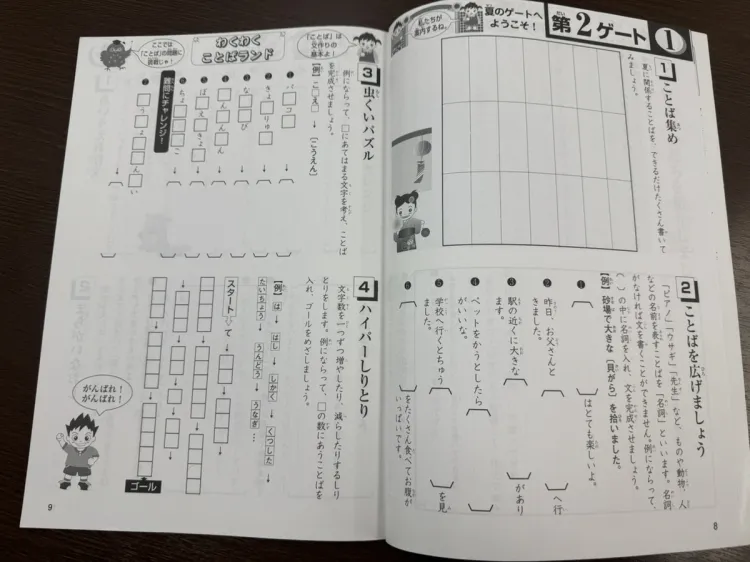 私たちが
案内するね。
夏のゲートへ
ようこそ！
第2ゲート
1
1 ことば集め
夏に関係することばを、できるだけたくさん書いて
みましょう。
2 ことばを広げましょう
「ピアノ」「ウサギ」「先生」など、ものや動物、人
などの名前を表すことばを「名詞」といいます。名詞
がなければ文を書くことができません。例にならって、
（ ）の中に名詞を入れ、文を完成させましょう。
【例】砂場で大きな〔貝がら〕を拾いました。
❶
はとても楽しいよ。
❷ 昨日、お父さんと
へ行
きました。
❸ 駅の近くに大きな
があり
ます。
❹ ペットをかうとしたら
がいいな。
❺ 学校へ行くとちゅう
を見
ました。
❻
をたくさん食べてお腹が
いっぱいです。
8
わくわく
ことばランド
「ことば」は
文作りの
基本よ！
ここでは
「ことば」の問題に
挑戦じゃ！
3 虫くいパズル
例にならって、□にあてはまる文字を考え、ことば
を完成させましょう。
【例】こ□え□ → 〔こうえん〕
❶ パ□コ□ →
❷ きょ□りゅ□ →
❸ な□□び →
❹ □ん□ん →
❺ ぼ□え□きょ□ →
❻ ちょ□□□こ →
難問にチャレンジ！
□う□ょ□□ん□い
4 ハイパーしりとり
文字数を一つずつ増やしたり、減らしたりするしり
とりをします。例にならって、□の数にあうことばを
入れ、ゴールをめざしましょう。
【例】は → はし → しかく → くつした →
たいちょう → うんどう → うなぎ …
スタート
て
ゴール
がんばれ！
がんばれ！
9